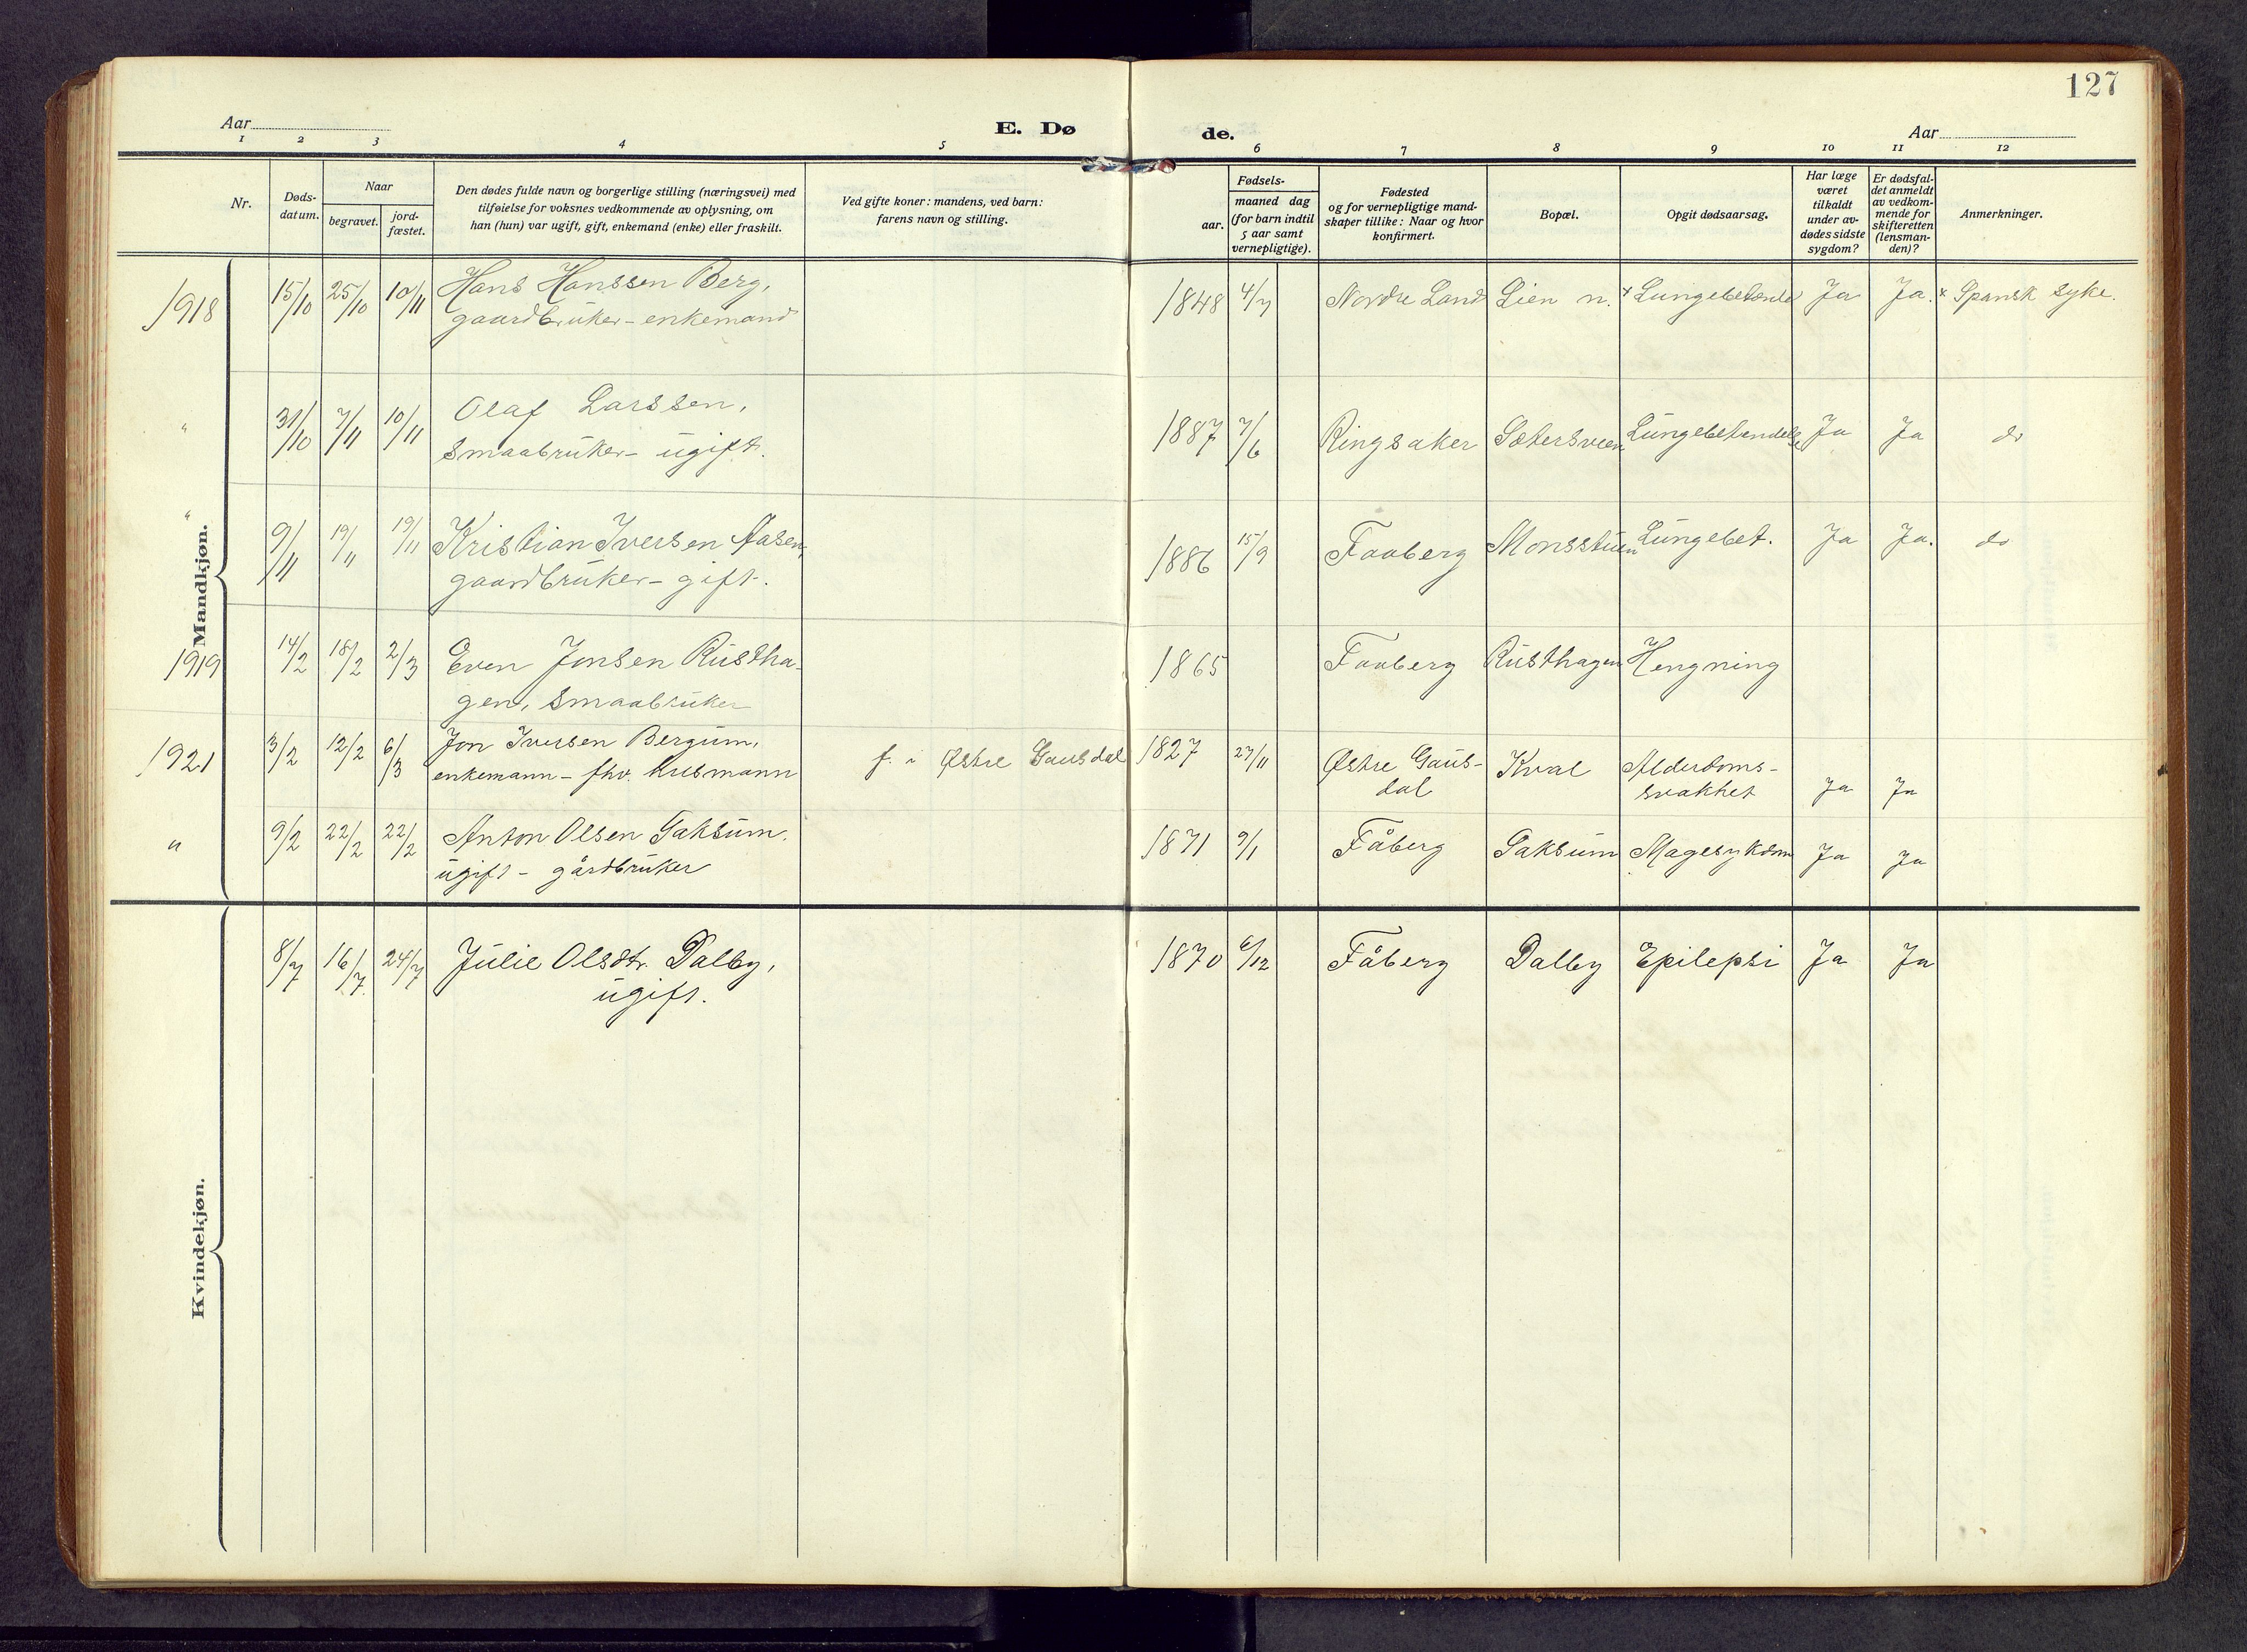 127
Aar
E. Dø
de.
Aar
1 2 3 4 5 6 7 8 9 10 11 12
Nr.
Døds-
datum.
Naar
begravet.
jord-
fæstet.
Den dødes fulde navn og borgerlige stilling (næringsvei) med
tilføielse for voksnes vedkommende av oplysning, om
han (hun) var ugift, gift, enkemand (enke) eller fraskilt.
Ved gifte koner: mandens, ved barn:
farens navn og stilling.
Fødsels-
aar.
maaned dag
(for barn indtil
5 aar samt
vernepligtige).
Fødested
og for vernepligtige mand-
skaper tillike: Naar og hvor
konfirmert.
Bopæl.
Opgit dødsaarsag.
Har læge
været
tilkaldt
under av-
dødes sidste
sygdom?
Er dødsfal-
det anmeldt
av vedkom-
mende for
skifteretten
(lensman-
den)?
Anmerkninger.
Mandkjøn.
1918 15/10 25/10 10/11 Hans Hanssen Berg, 1848 4/7 Nordre Land Lien n. × Lungebetænde Ja Ja. × Spansk syke.
gaardbruker - enkemand
" 31/10 7/11 10/11 Olaf Larssen, 1887 7/6 Ringsaker Sætersveen Lungebetendelse Ja Ja do
smaabruker - ugift.
" 9/11 19/11 19/11 Kristian Iversen Aasen, 1886 15/9 Faaberg Monsstuen Lungebet. Ja Ja. do
gaardbruker - gift.
1919 14/2 18/2 2/3 Even Jonsen Rustha- 1865 Faaberg Rusthagen Hengning
gen, smaabruker
1921 3/2 12/2 6/3 Jon Iversen Bergum, f. i Østre Gausdal 1827 27/11 Østre Gaus- Kval Alderdoms-
enkemann - fhv. husmann dal svakhet Ja Ja
" 9/2 22/2 22/2 Anton Olsen Saksum. 1871 9/1 Fåberg Saksum Magesykdom Ja Ja
ugift - gårdbruker
Kvindekjøn.
8/7 16/7 24/7 Julie Olsdtr. Dalby, 1870 6/12 Fåberg Dalby Epilepsi Ja Ja
ugift.